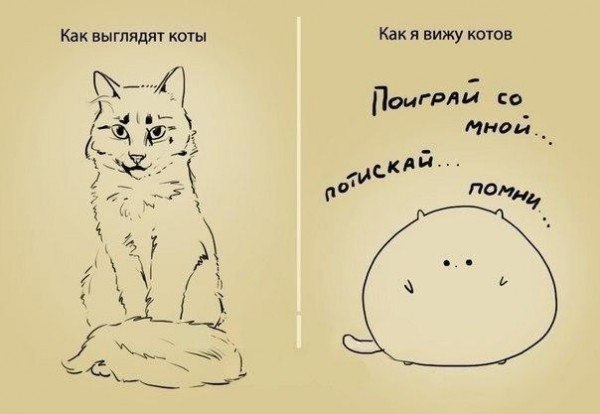 Как выглядят коты
Как я вижу котов
Поиграй со
мной...
потискай...
помни...